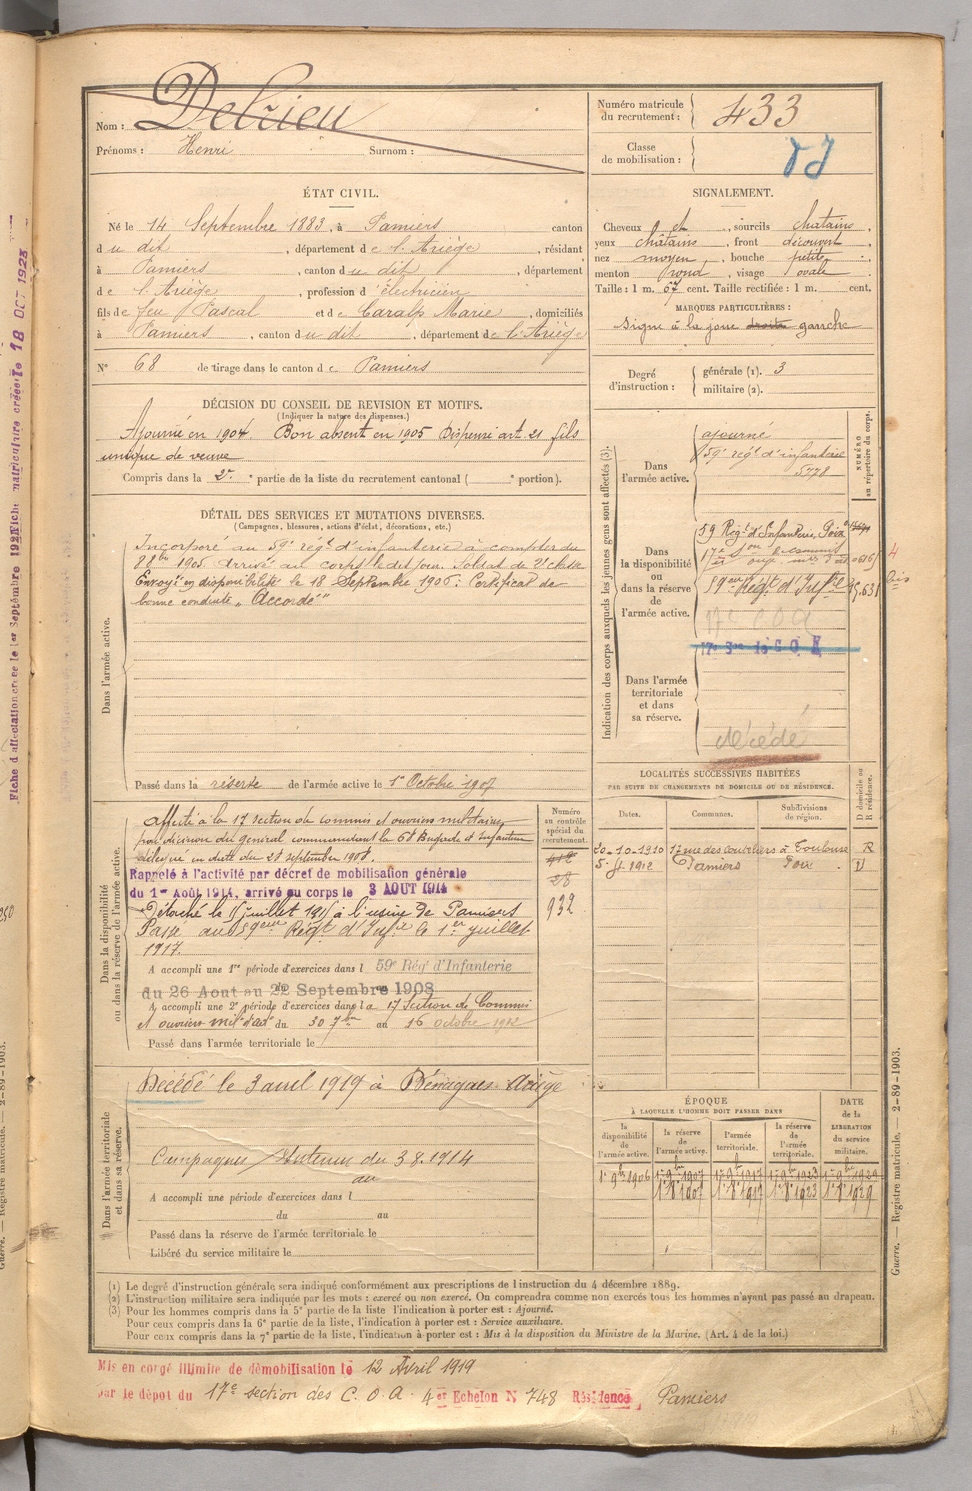 Nom : Delrieu
Prénoms : Henri Surnom :
Numéro matricule du recrutement : 433
Classe de mobilisation :
ÉTAT CIVIL.
Né le 14 Septembre 1883, à Pamiers canton
du dit, département de l'Ariège, résidant
à Pamiers, canton du dit, département
de l'Ariège, profession d'électricien
fils de feu Pascal et de Caralp Marie, domiciliés
à Pamiers, canton du dit, département de l'Ariège
N° 68 de tirage dans le canton de Pamiers
SIGNALEMENT.
Cheveux et, sourcils chatains,
yeux châtains, front découvert
nez moyen, bouche petite,
menton rond, visage ovale
Taille : 1 m. 67 cent. Taille rectifiée : 1 m. cent.
MARQUES PARTICULIÈRES :
Signe à la joue droite gauche
Degré d'instruction : générale (1). 3
militaire (2).
DÉCISION DU CONSEIL DE REVISION ET MOTIFS.
(Indiquer la nature des dispenses.)
Ajourné en 1904. Bon absent en 1905 Dispensé art. 21 fils
unique de veuve
Compris dans la 2e partie de la liste du recrutement cantonal ( e portion).
DÉTAIL DES SERVICES ET MUTATIONS DIVERSES.
(Campagnes, blessures, actions d'éclat, décorations, etc.)
Dans l'armée active.
Incorporé au 59e régt d'infanterie à compter du
8 8bre 1905. Arrivé au corps le dit jour. Soldat de 2e classe
Envoyé en disponibilité le 18 Septembre 1906. Certificat de
bonne conduite „ Accordé"
Passé dans la réserve de l'armée active le 1er Octobre 1907
Indication des corps auxquels les jeunes gens sont affectés (3).
NUMÉRO au répertoire du corps.
Dans l'armée active.
ajourné
59e régt d'infanterie
5778
Dans la disponibilité ou dans la réserve de l'armée active.
59 Régt d'Infanterie Foix
59eme Régt d'Infie
17e COA
Dans l'armée territoriale et dans sa réserve.
décédé
Dans la disponibilité ou dans la réserve de l'armée active.
Affecté à la 17 section de commis et ouvriers militaires
par décision du général commandant la 68e Brigade d'Infanterie
délégué en date du 28 septembre 1908.
Rappelé à l'activité par décret de mobilisation générale
du 1er Août 1914, arrivé au corps le 3 AOUT 1914
Détaché le juillet à l'usine de Pamiers
Passé au 59eme Régt d'Infie le 1er juillet
1917.
A accompli une 1re période d'exercices dans l 59e Rég' d'Infanterie
du 26 Aout au 22 Septembre 1908
A accompli une 2e période d'exercices dans la 17 Section de Commis
et ouvriers milres d'adon du 30 7bre au 16 octobre 1912
Passé dans l'armée territoriale le
Numéro au contrôle spécial du recrutement.
28
932
LOCALITÉS SUCCESSIVES HABITÉES
PAR SUITE DE CHANGEMENTS DE DOMICILE OU DE RÉSIDENCE.
Dates. Communes. Subdivisions de région. D domicile ou R résidence.
20-10-1910 17 rue des couteliers à Toulouse R
1912 Pamiers Foix D
Dans l'armée territoriale et dans sa réserve.
Décédé le 3 avril 1919 à Bénagues Ariège
Campagnes du 3.8.1914
au
A accompli une période d'exercices dans l
du au
Passé dans la réserve de l'armée territoriale le
Libéré du service militaire le
ÉPOQUE
À LAQUELLE L'HOMME DOIT PASSER DANS
la disponibilité de l'armée active. la réserve de l'armée active. l'armée territoriale. la réserve de l'armée territoriale. DATE de la LIBÉRATION du service militaire.
1er 9bre 1906 1er 9bre 1907 1er 9bre 1917 1er 9bre 1923 1er 9bre 1929
1er 8e 1907 1er 8e 1917 1er 8e 1923 1er 8e 1929
(1) Le degré d'instruction générale sera indiqué conformément aux prescriptions de l'instruction du 4 décembre 1889.
(2) L'instruction militaire sera indiquée par les mots : exercé ou non exercé. On comprendra comme non exercés tous les hommes n'ayant pas passé au drapeau.
(3) Pour les hommes compris dans la 5e partie de la liste l'indication à porter est : Ajourné.
Pour ceux compris dans la 6e partie de la liste, l'indication à porter est : Service auxiliaire.
Pour ceux compris dans la 7e partie de la liste, l'indication à porter est : Mis à la disposition du Ministre de la Marine. (Art. 4 de la loi.)
Mis en congé illimité de démobilisation le 12 Avril 1919
par le dépot du 17e section des C.O.A. 4er Echelon N° 748 Résidence Pamiers
Guerre. — Registre matricule. — 2-89-1903.